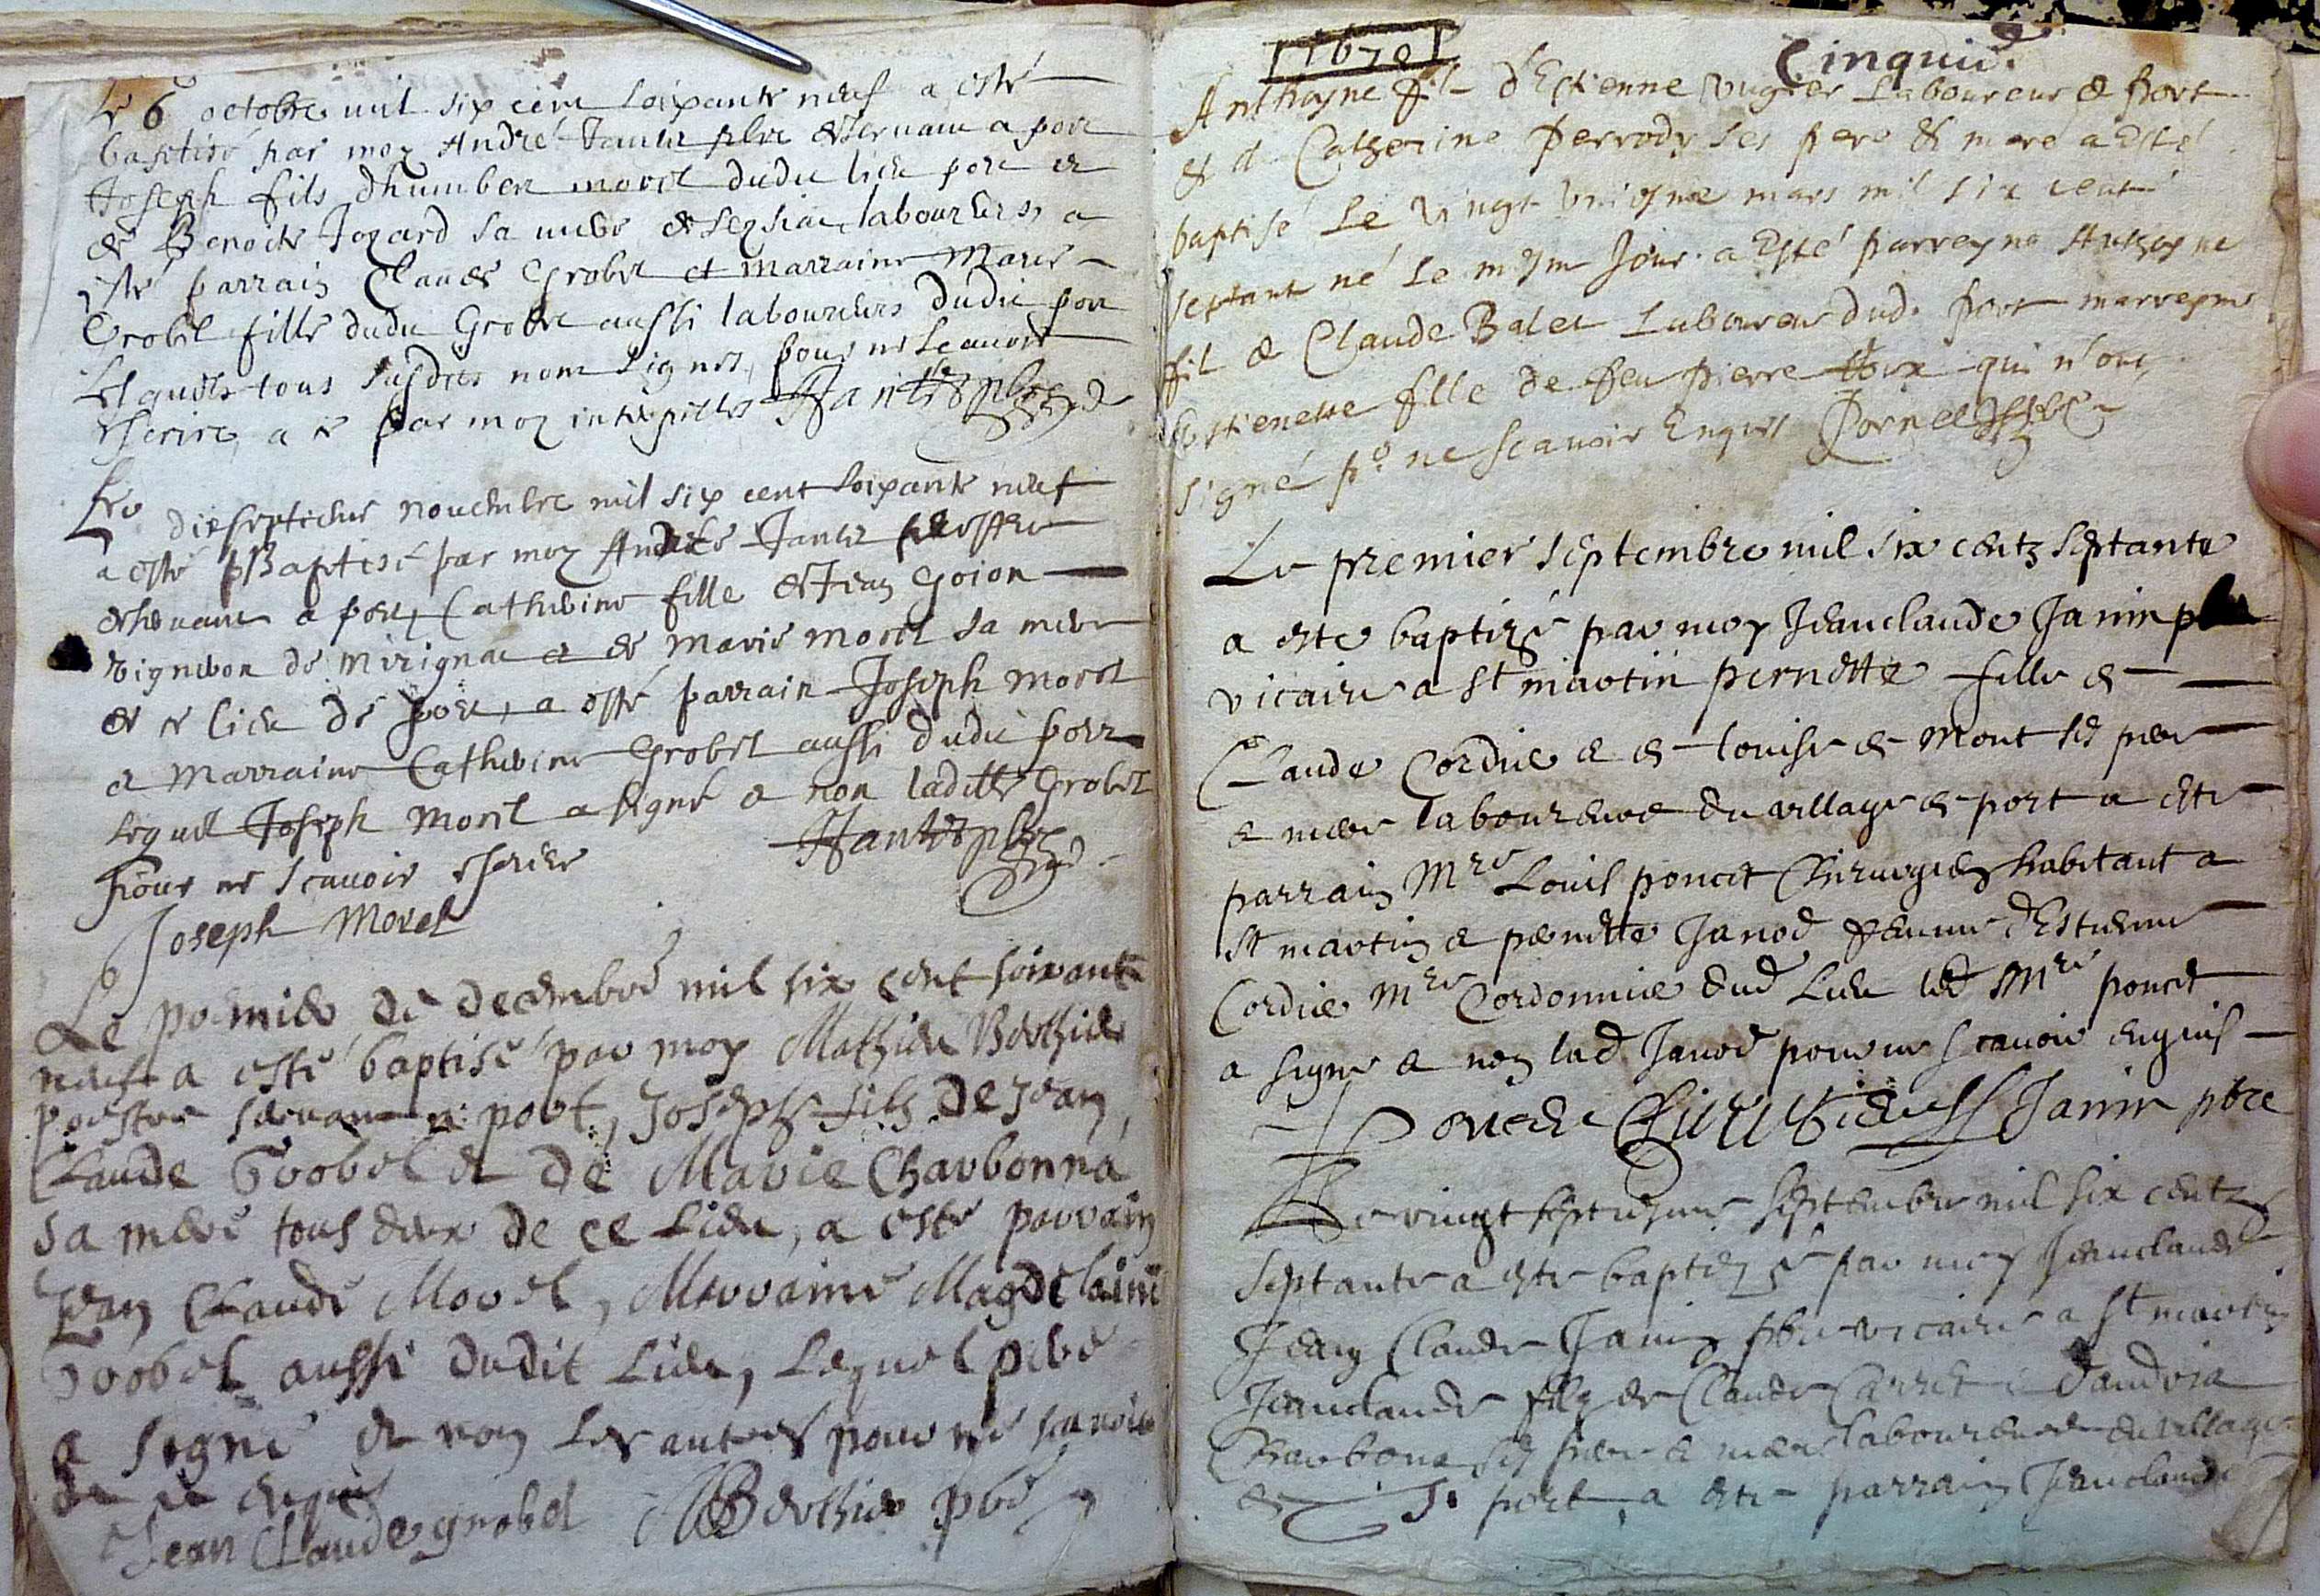 Le 6 octobre mil six cent soixante neuf a esté
baptisé par moy André Janter pbre deservant a port
Joseph fils dhumbert morel dudit lieu port et
de Benoite Jozard sa mere laboureurs a
esté parrain Claude Grobel et marraine Marie
Grobel fille dudit Grobel aussi laboureurs dudit port
Lesquels tous susdits nont signés pour ne scavoir
escrire a ce par moy interpelles Janter pbre
Le diesseptieme novembre mil six cent soixante neuf
a esté Baptisé par moy André Janter
deservant a port, Catherine fille de Jean Goion
vigneron de mirignac et de Marie morel sa mere
de ce lieu de port, a esté parrain Joseph morel
et Marraine Catherine Grobel aussi dudit port
lequel Joseph Morel a signé et non laditte Grobel
pour ne scavoir escrire Janter pbre
Joseph Morel
Le premier de decembre mil six cent soixante
neuf a esté baptisé par moy Mathieu Berthier
prestre servant a port, Joseph fils de Jean
Claude Grobel et de Marie Charbonna
sa mere tous deux de ce Lieu, a esté parrain
Jean Claude Morel, Marraine Magdelaine
Grobel aussi dudit Lieu, Lequel pere
a signé et non Les autres pour ne scavoir
de ce enquis
Jean Claude grobel MBerthier pbre
1670
Cinquie
Anthoyne fil d'Estienne Laboureur de port
et de Catherine perrody ses pere & mere a Esté
baptisé Le vingt uniesme mars mil six cent
septant né Le mesme Jour. a Esté parreyne Anthoyne
fil de Claude Balet Laboureur dud. port marreyne
Estienette fille de feu pierre qui n'ont
signé po. ne scavoir Enquis Pornel
Le premier septembre mil six centz septante
a este baptizé par moy Jeanclaude Janin pbre
vicaire a st martin pernette fille de
Claude Cordier et de louise de Mont ses pere
et mere laboureurs du village de port a este
parrain Mre Louis poncet Chirurgien habitant a
st martin et pernette Janod femme dEstienne
Cordier Mre Cordonnier dud Lieu led Mre poncet
a signe et non lad Janod pour ne scavoir enquis
Poncet Chirurgien Janin pbre
Le vingt septiesme septembre mil six centz
septante a este baptizé par moy Jeanclaude
Jean Claude Janin pbre vicaire a st martin
Jeanclaude filz de Claude Carret et dandrea
Charbona ses pere et mere laboureurs du village
de port, a este parrain Jeanclaude